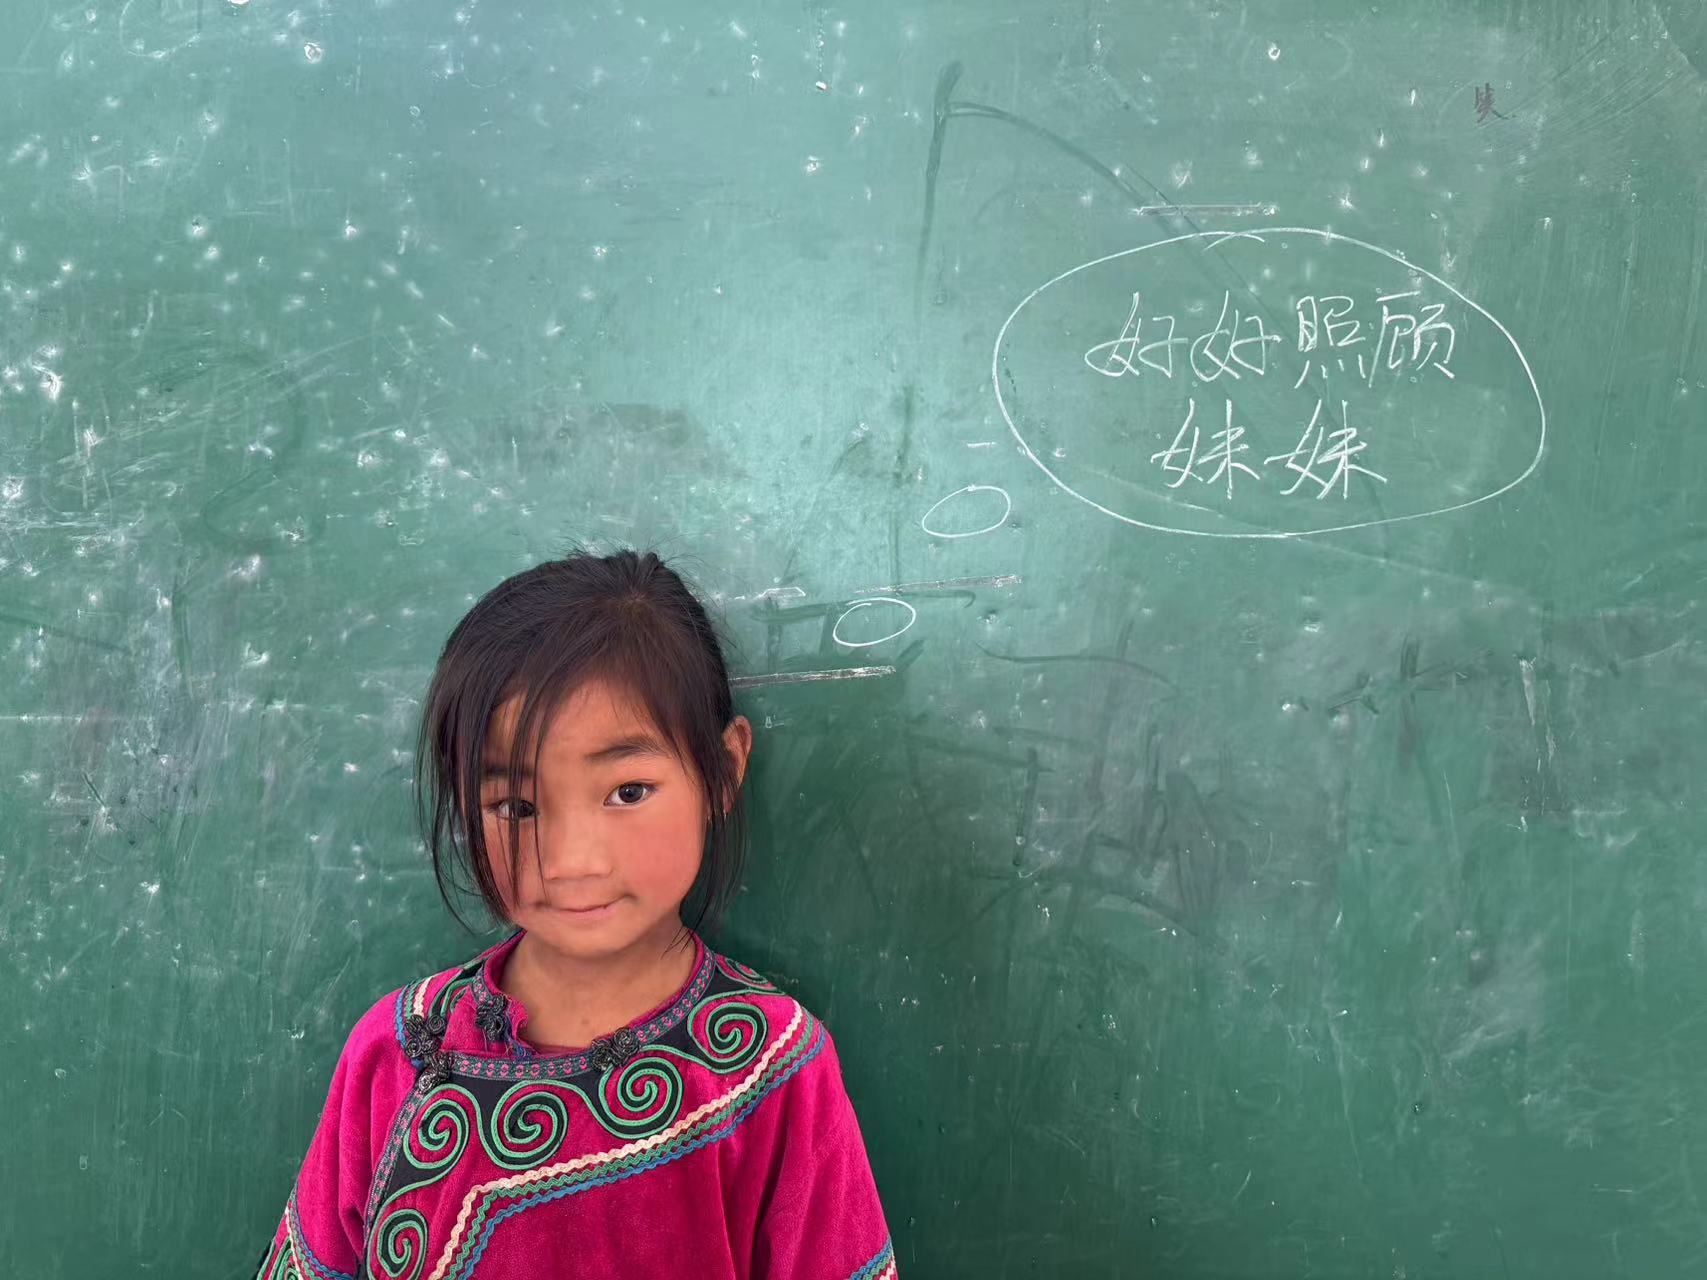 好好照顾
妹妹